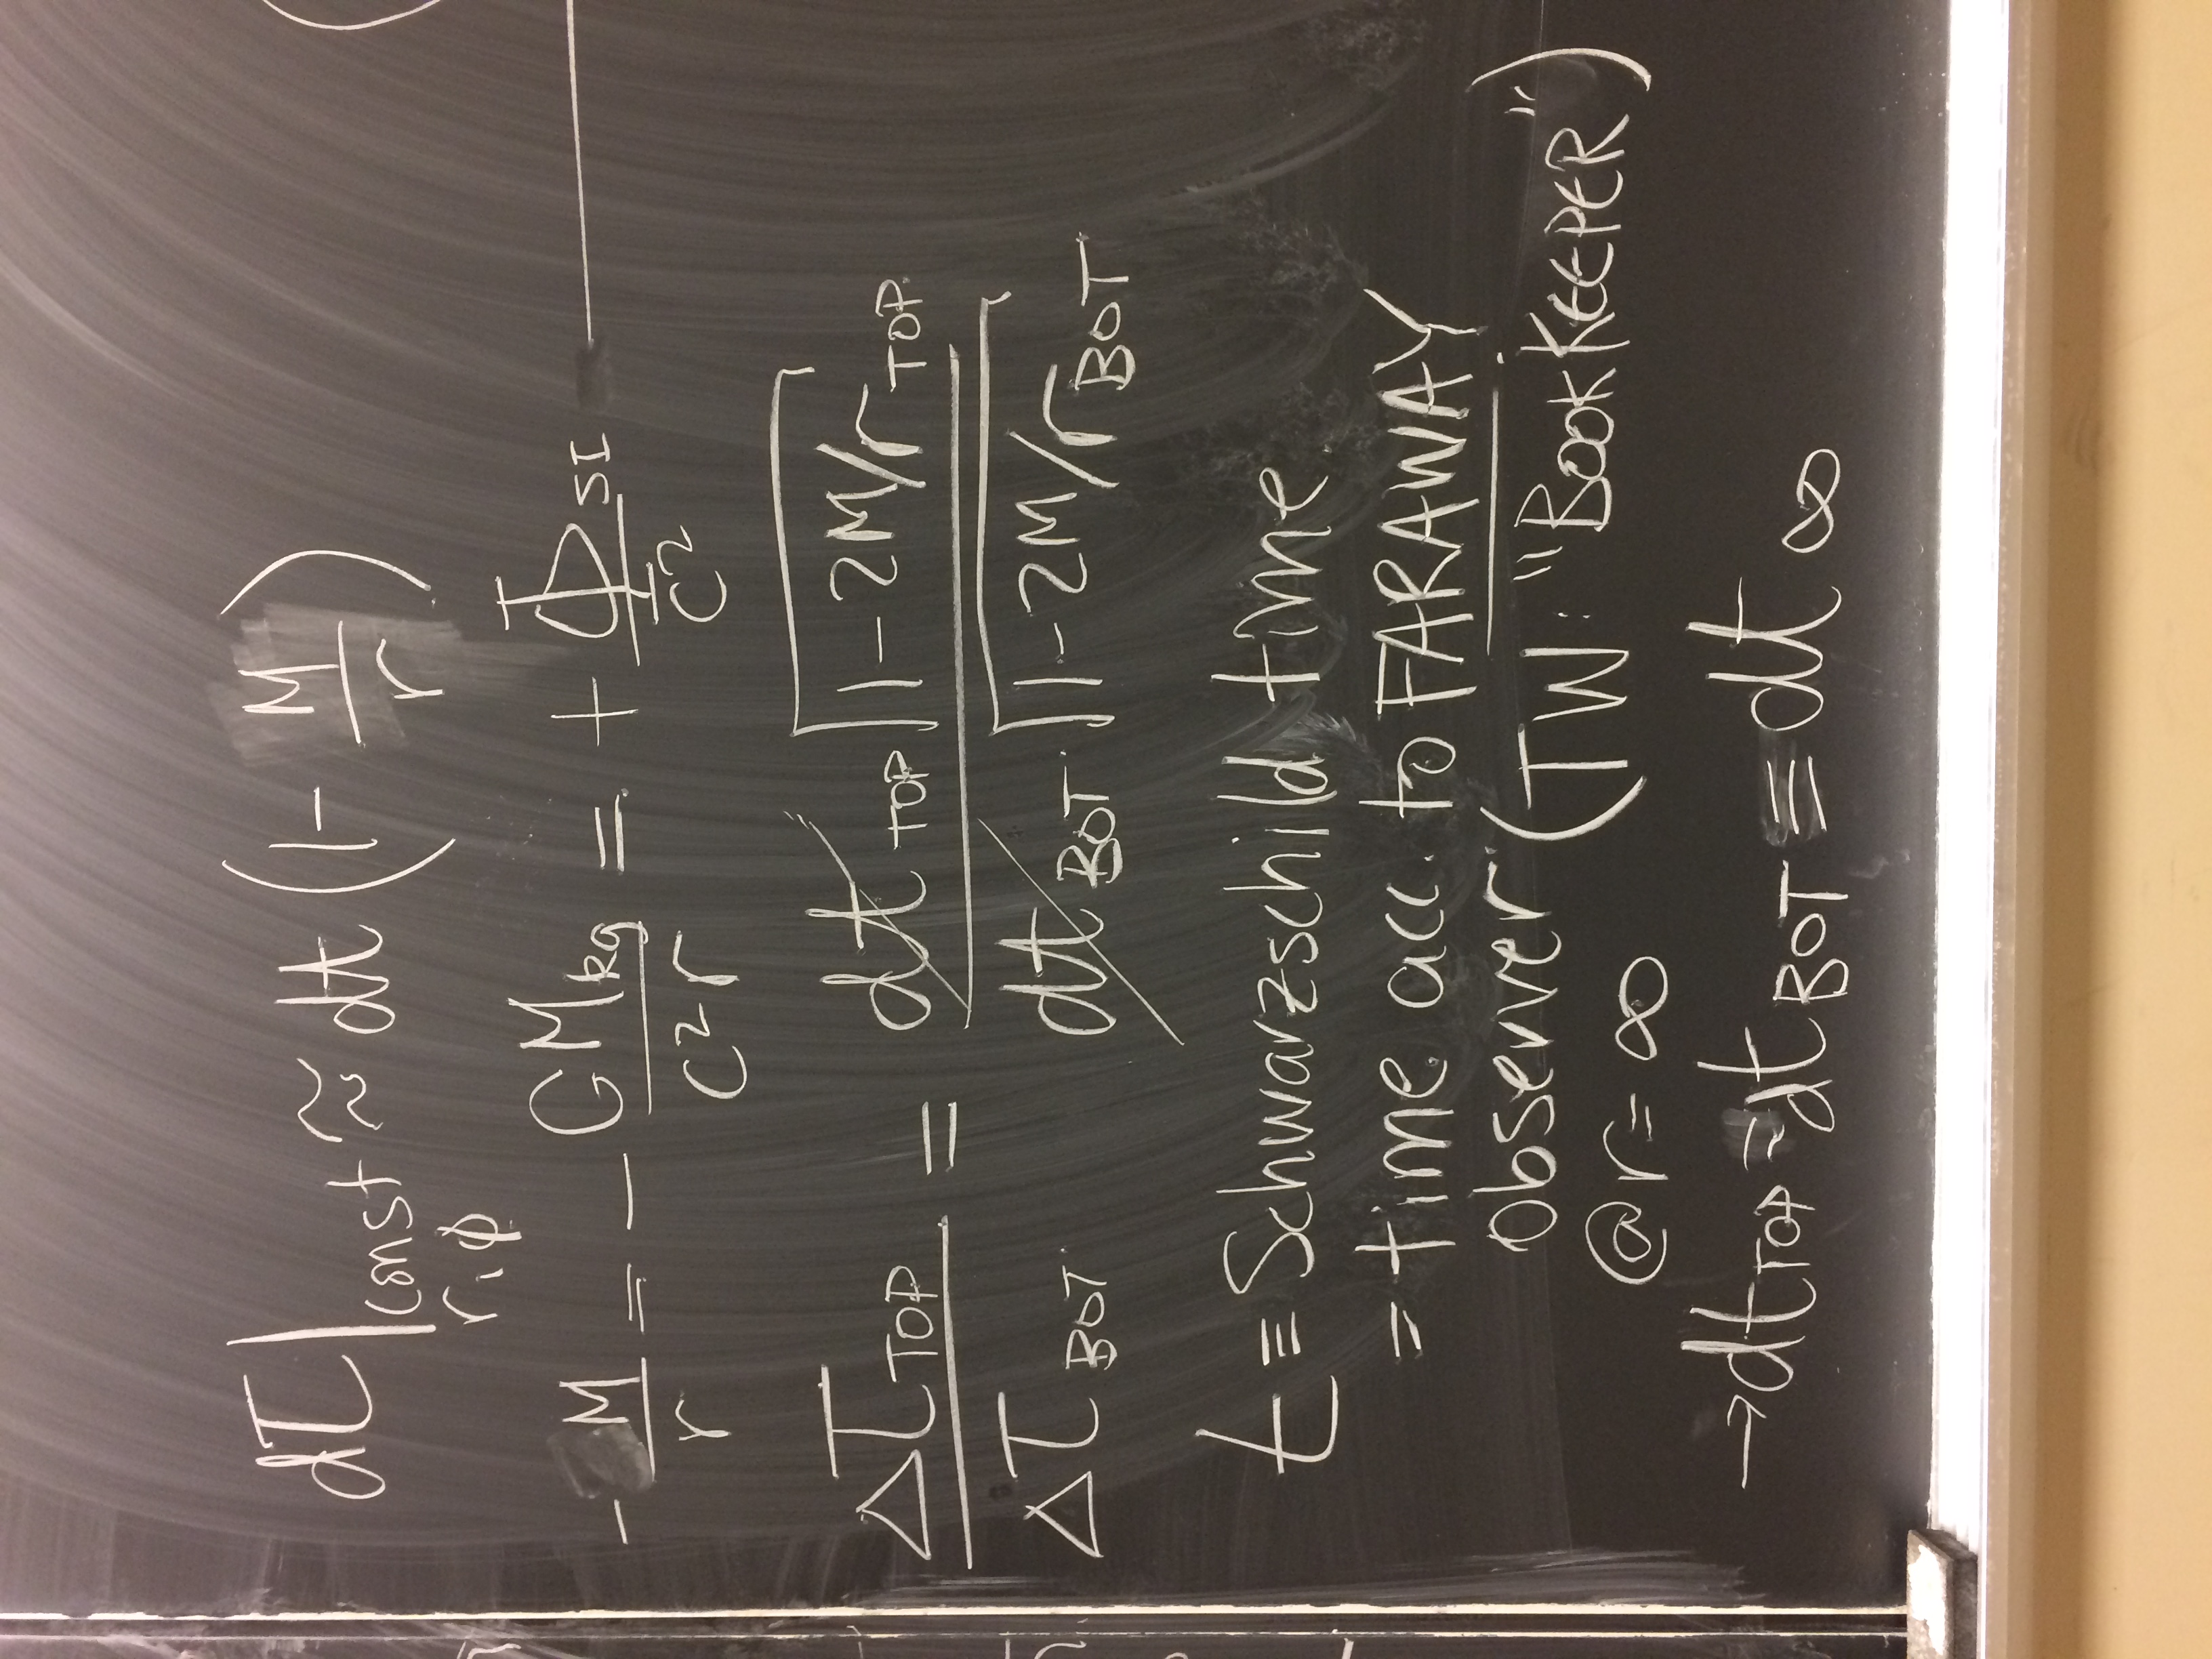 dτ|const r,φ ≈ dt (1 - M/r)
- M/r = - GMkg/c²r = + ΦSI/c²
ΔτTOP/ΔτBOT = dtTOP √(1-2M/rTOP) / dtBOT √(1-2M/rBOT)
t ≡ Schwarzschild time
= time acc. to FARAWAY
observer (TW: "BOOKKEEPER")
@ r = ∞
→ dtTOP = dtBOT ≡ dt∞